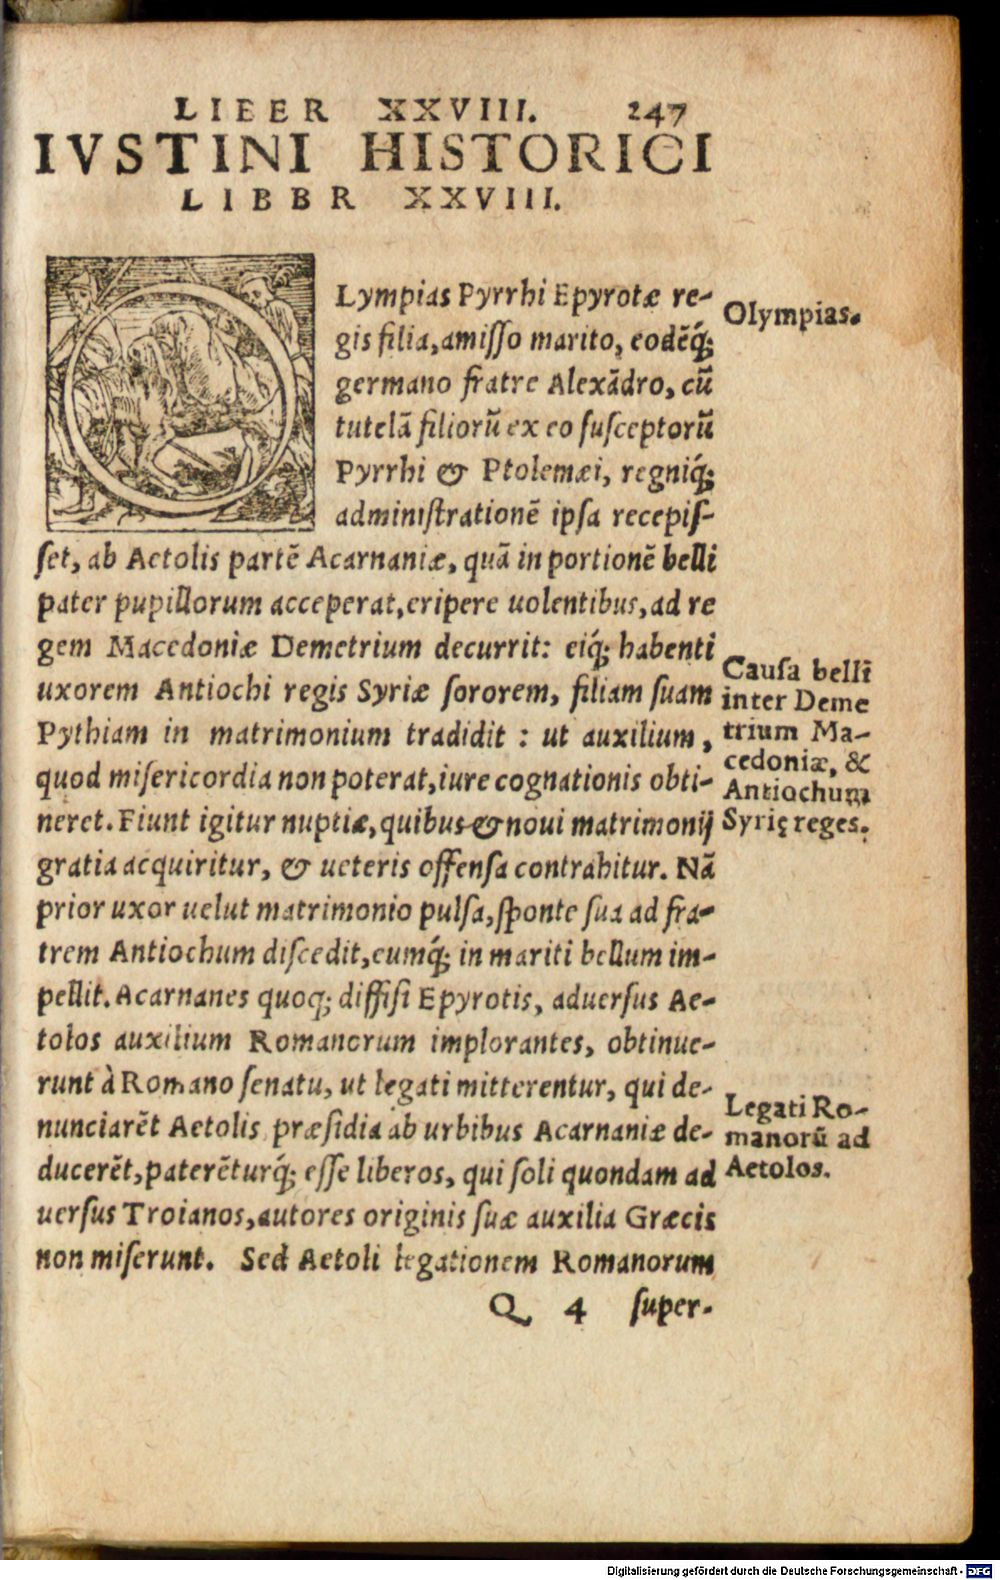 LIBER XXVIII. 247
IVSTINI HISTORICI
LIBBR XXVIII.
OLympias Pyrrhi Epyrotæ re-
gis filia, amisso marito, eodẽq́;
germano fratre Alexãdro, cũ
tutelã filiorũ ex eo susceptorũ
Pyrrhi & Ptolemæi, regniq́;
administrationẽ ipsa recepis-
set, ab Aetolis partẽ Acarnaniæ, quã in portionẽ belli
pater pupillorum acceperat, eripere uolentibus, ad re
gem Macedoniæ Demetrium decurrit: eiq́; habenti
uxorem Antiochi regis Syriæ sororem, filiam suam
Pythiam in matrimonium tradidit : ut auxilium,
quod misericordia non poterat, iure cognationis obti-
neret. Fiunt igitur nuptiæ, quibus & noui matrimonij
gratia acquiritur, & ueteris offensa contrahitur. Nã
prior uxor uelut matrimonio pulsa, sponte sua ad fra-
trem Antiochum discedit, eumq́; in mariti bellum im-
pellit. Acarnanes quoq; diffisi Epyrotis, aduersus Ae-
tolos auxilium Romanorum implorantes, obtinue-
runt à Romano senatu, ut legati mitterentur, qui de-
nunciarẽt Aetolis præsidia ab urbibus Acarnaniæ de-
ducerẽt, paterẽturq́; esse liberos, qui soli quondam ad
uersus Troianos, autores originis suæ auxilia Græcis
non miserunt. Sed Aetoli legationem Romanorum
Q 4 super-
Olympias.
Causa belli
inter Deme
trium Ma-
cedoniæ, &
Antiochum
Syrię reges.
Legati Ro-
manorũ ad
Aetolos.
Digitalisierung gefördert durch die Deutsche Forschungsgemeinschaft - DFG